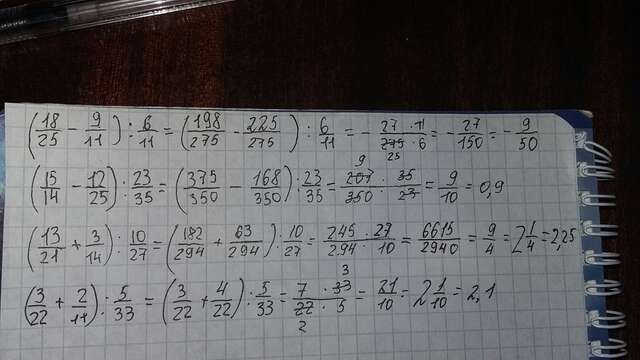 (18/25 - 9/11) : 6/11 = (198/275 - 225/275) : 6/11 = - 27·11/275·6 25 = - 27/150 = - 9/50
(15/14 - 12/25) : 23/35 = (375/350 - 168/350) : 23/35 = 9 207/350 · 35/23 = 9/10 = 0,9
(13/21 + 3/14) : 10/27 = (182/294 + 63/294) : 10/27 = 245·27/294·10 = 6615/2940 = 9/4 = 2 1/4 = 2,25
(3/22 + 2/11) : 5/33 = (3/22 + 4/22) : 5/33 = 7·33 3/22·5 2 = 21/10 = 2 1/10 = 2,1